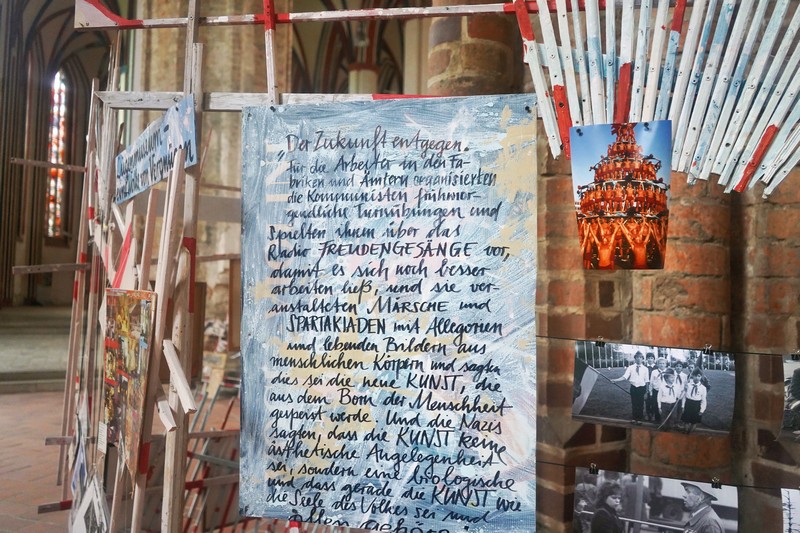 Der Zukunft entgegen.
Für die Arbeiter in den Fa-
briken und Ämtern organisierten
die Kommunisten frühmor-
gendliche Turnübungen und
spielten ihnen über das
Radio FREUDENGESÄNGE vor,
damit es sich noch besser
arbeiten ließ, und sie ver-
anstalteten MÄRSCHE und
SPARTAKIADEN mit Allegorien
und lebenden Bildern aus
menschlichen Körpern und sagten
dies sei die neue KUNST, die
aus dem Born der Menschheit
gespeist werde. Und die Nazis
sagten, dass die KUNST keine
ästhetische Angelegenheit
sei, sondern eine biologische
und dass gerade die KUNST wie
die Seele des Volkes sei und